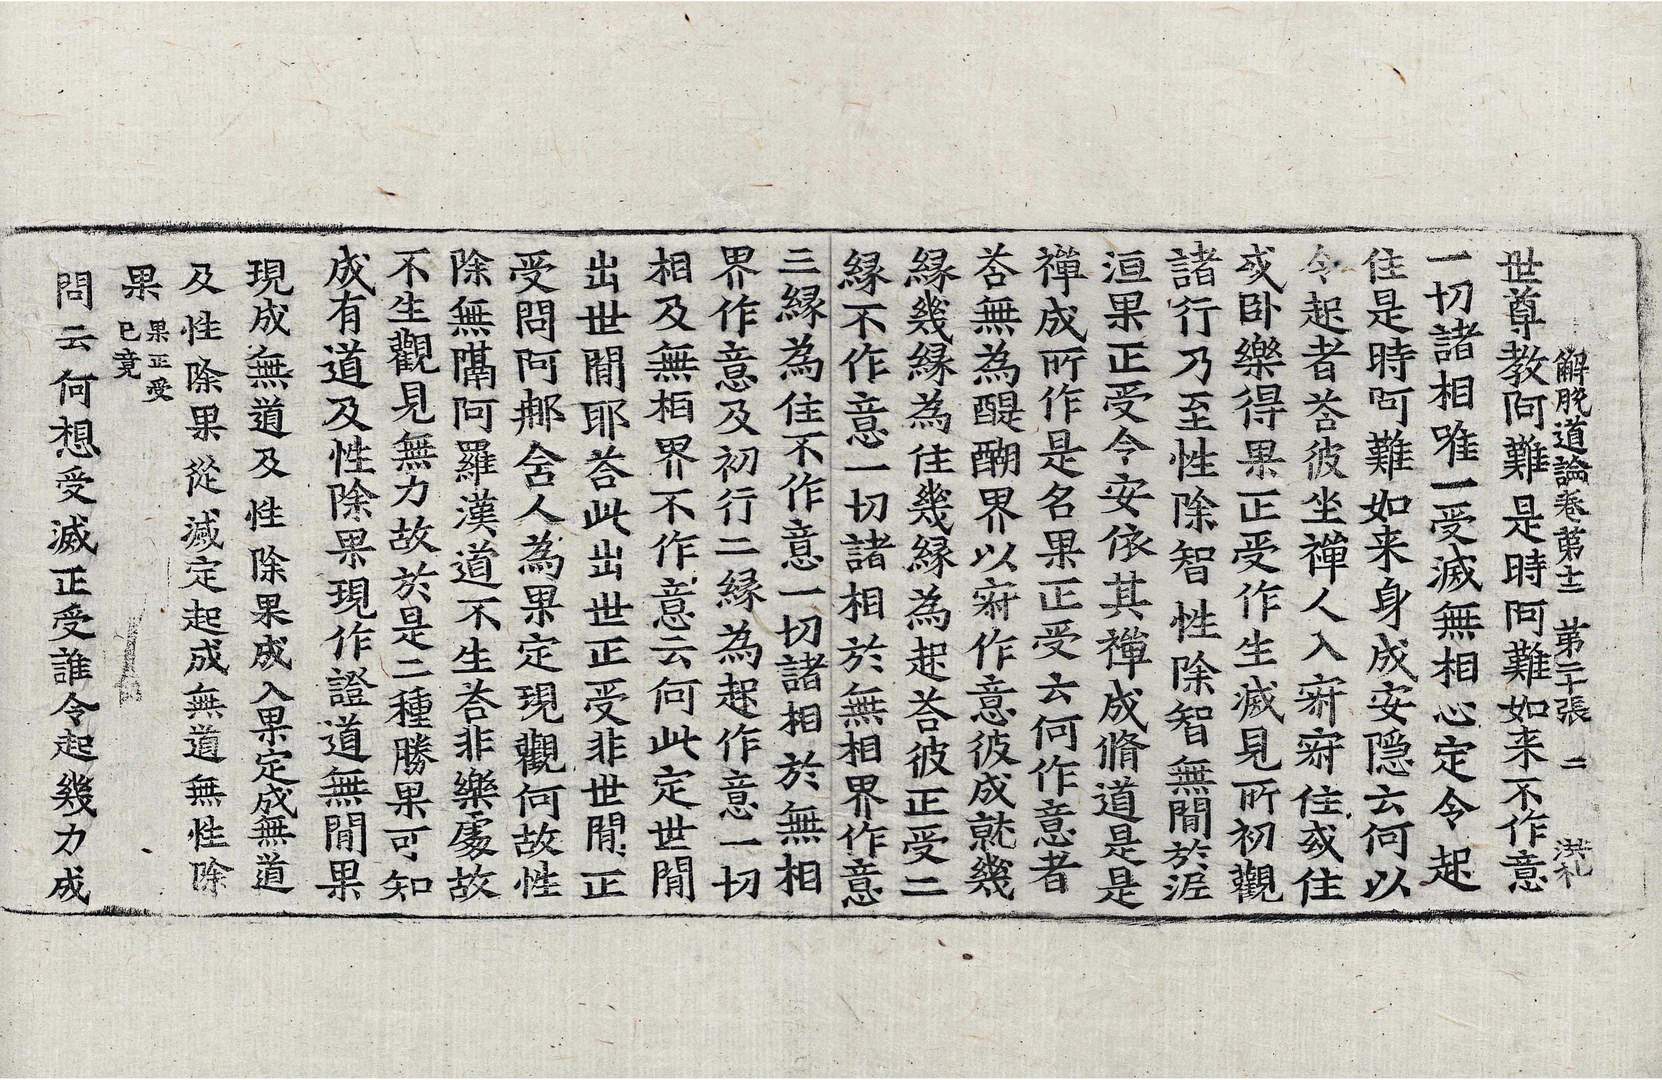 解脫道論卷第十二 第二十張 二 洪札
世尊教阿難是時阿難如来不作意
一切諸相唯一受滅無相心定令起
住是時阿難如来身成安隱云何以
令起者荅彼坐禪人入寂寂住或住
或卧樂得果正受作生滅見所初觀
諸行乃至性除智性除智無閒於泥
洹果正受令安依其禪成脩道是是
禪成所作是名果正受云何作意者
荅無為醍醐界以寂作意彼成就幾
縁幾縁為住幾縁為起荅彼正受二
縁不作意一切諸相於無相界作意
三縁為住不作意一切諸相於無相
界作意及初行二縁為起作意一切
相及無相界不作意云何此定世閒
出世閒耶荅此出世正受非世閒正
受問阿那含人為果定現觀何故性
除無隔阿羅漢道不生荅非樂處故
不生觀見無力故於是二種勝果可知
成有道及性除果現作證道無閒果
現成無道及性除果成入果定成無道
及性除果從滅定起成無道無性除
果 果正受已竟
問云何想受滅正受誰令起幾力成